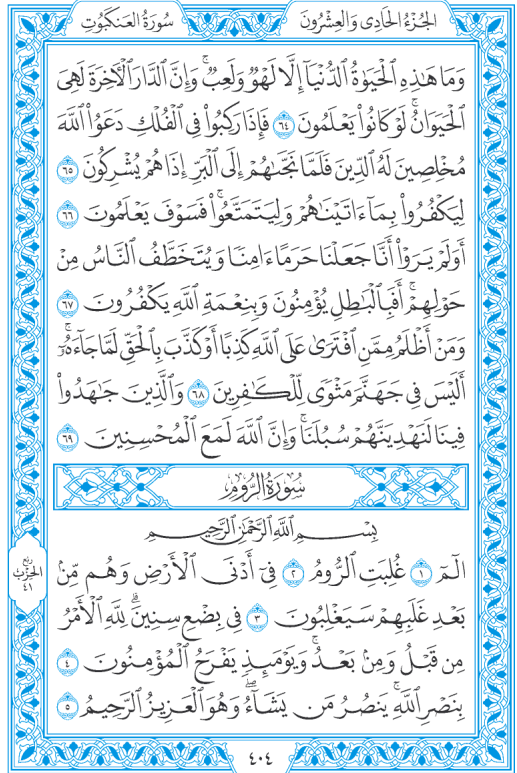 الجُزْءُ الحَادِى وَالعِشْرُونَ
سُورَةُ العَنكَبُوتِ
وَمَا هَٰذِهِ الْحَيَوٰةُ الدُّنْيَآ إِلَّا لَهْوٌ وَلَعِبٌ ۚ وَإِنَّ الدَّارَ الْـَٔاخِرَةَ لَهِىَ
الْحَيَوَانُ ۚ لَوْ كَانُوا۟ يَعْلَمُونَ ٦٤ فَإِذَا رَكِبُوا۟ فِى الْفُلْكِ دَعَوُا۟ اللَّهَ
مُخْلِصِينَ لَهُ الدِّينَ فَلَمَّا نَجَّىٰهُمْ إِلَى الْبَرِّ إِذَا هُمْ يُشْرِكُونَ ٦٥
لِيَكْفُرُوا۟ بِمَآ ءَاتَيْنَٰهُمْ وَلِيَتَمَتَّعُوا۟ ۖ فَسَوْفَ يَعْلَمُونَ ٦٦
أَوَلَمْ يَرَوْا۟ أَنَّا جَعَلْنَا حَرَمًا ءَامِنًا وَيُتَخَطَّفُ النَّاسُ مِنْ
حَوْلِهِمْ ۚ أَفَبِالْبَٰطِلِ يُؤْمِنُونَ وَبِنِعْمَةِ اللَّهِ يَكْفُرُونَ ٦٧
وَمَنْ أَظْلَمُ مِمَّنِ افْتَرَىٰ عَلَى اللَّهِ كَذِبًا أَوْ كَذَّبَ بِالْحَقِّ لَمَّا جَآءَهُۥٓ ۚ
أَلَيْسَ فِى جَهَنَّمَ مَثْوًى لِّلْكَٰفِرِينَ ٦٨ وَالَّذِينَ جَٰهَدُوا۟
فِينَا لَنَهْدِيَنَّهُمْ سُبُلَنَا ۚ وَإِنَّ اللَّهَ لَمَعَ الْمُحْسِنِينَ ٦٩
سُورَةُ الرُّومِ
بِسْمِ اللَّهِ الرَّحْمَٰنِ الرَّحِيمِ
الٓمٓ ١ غُلِبَتِ الرُّومُ ٢ فِىٓ أَدْنَى الْأَرْضِ وَهُم مِّنۢ
بَعْدِ غَلَبِهِمْ سَيَغْلِبُونَ ٣ فِى بِضْعِ سِنِينَ ۗ لِلَّهِ الْأَمْرُ
مِن قَبْلُ وَمِنۢ بَعْدُ ۚ وَيَوْمَئِذٍ يَفْرَحُ الْمُؤْمِنُونَ ٤
بِنَصْرِ اللَّهِ ۚ يَنصُرُ مَن يَشَآءُ ۖ وَهُوَ الْعَزِيزُ الرَّحِيمُ ٥
ربع
الحِزْب
٤١
٤٠٤